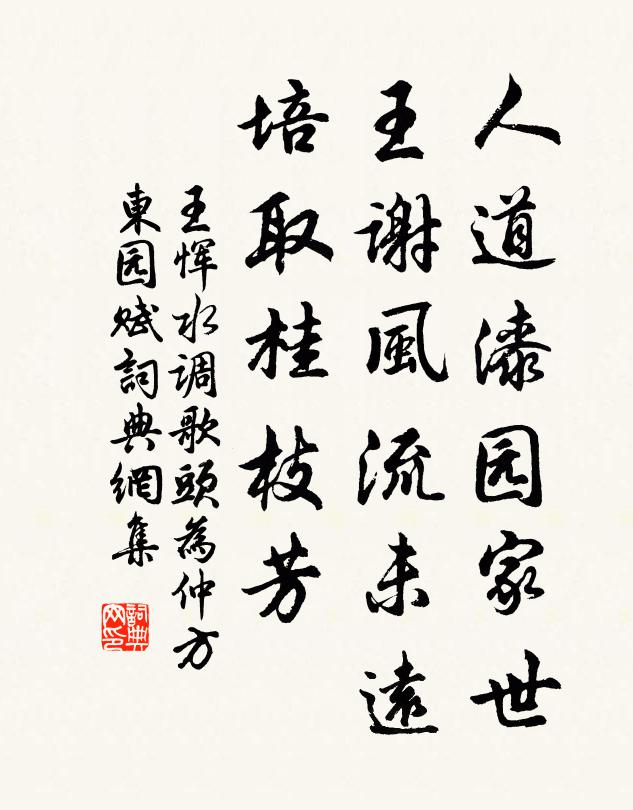 人道漆园家世
王谢風流未遠
培取桂枝芳
王恽水调歌頭為仲方
東园赋詞典網集
詞典网印